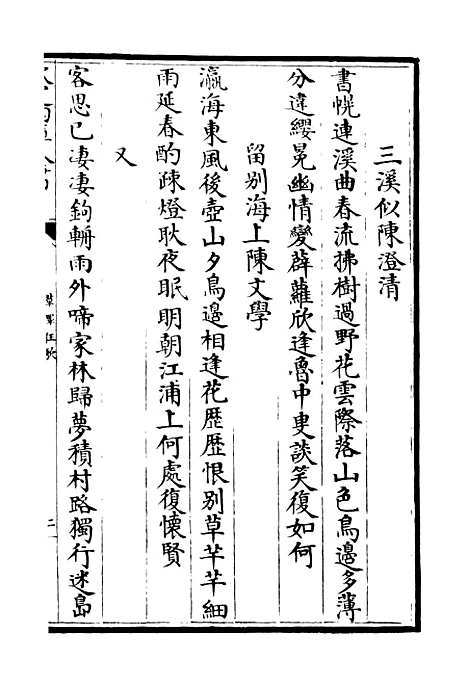 三溪似陳澄清
書幌連溪曲春流拂樹過野花雲際落山色鳥邊多薄
分違纓冕幽情變薜蘿欣逢魯中叟談笑復如何
留別海上陳文學
瀛海東風後壺山夕鳥邊相逢花歷歷恨別草芊芊細
雨延春酌疎燈耿夜眠明朝江浦上何處復懷賢
又
客思已凄凄鉤輈雨外啼家林歸夢積村路獨行迷島